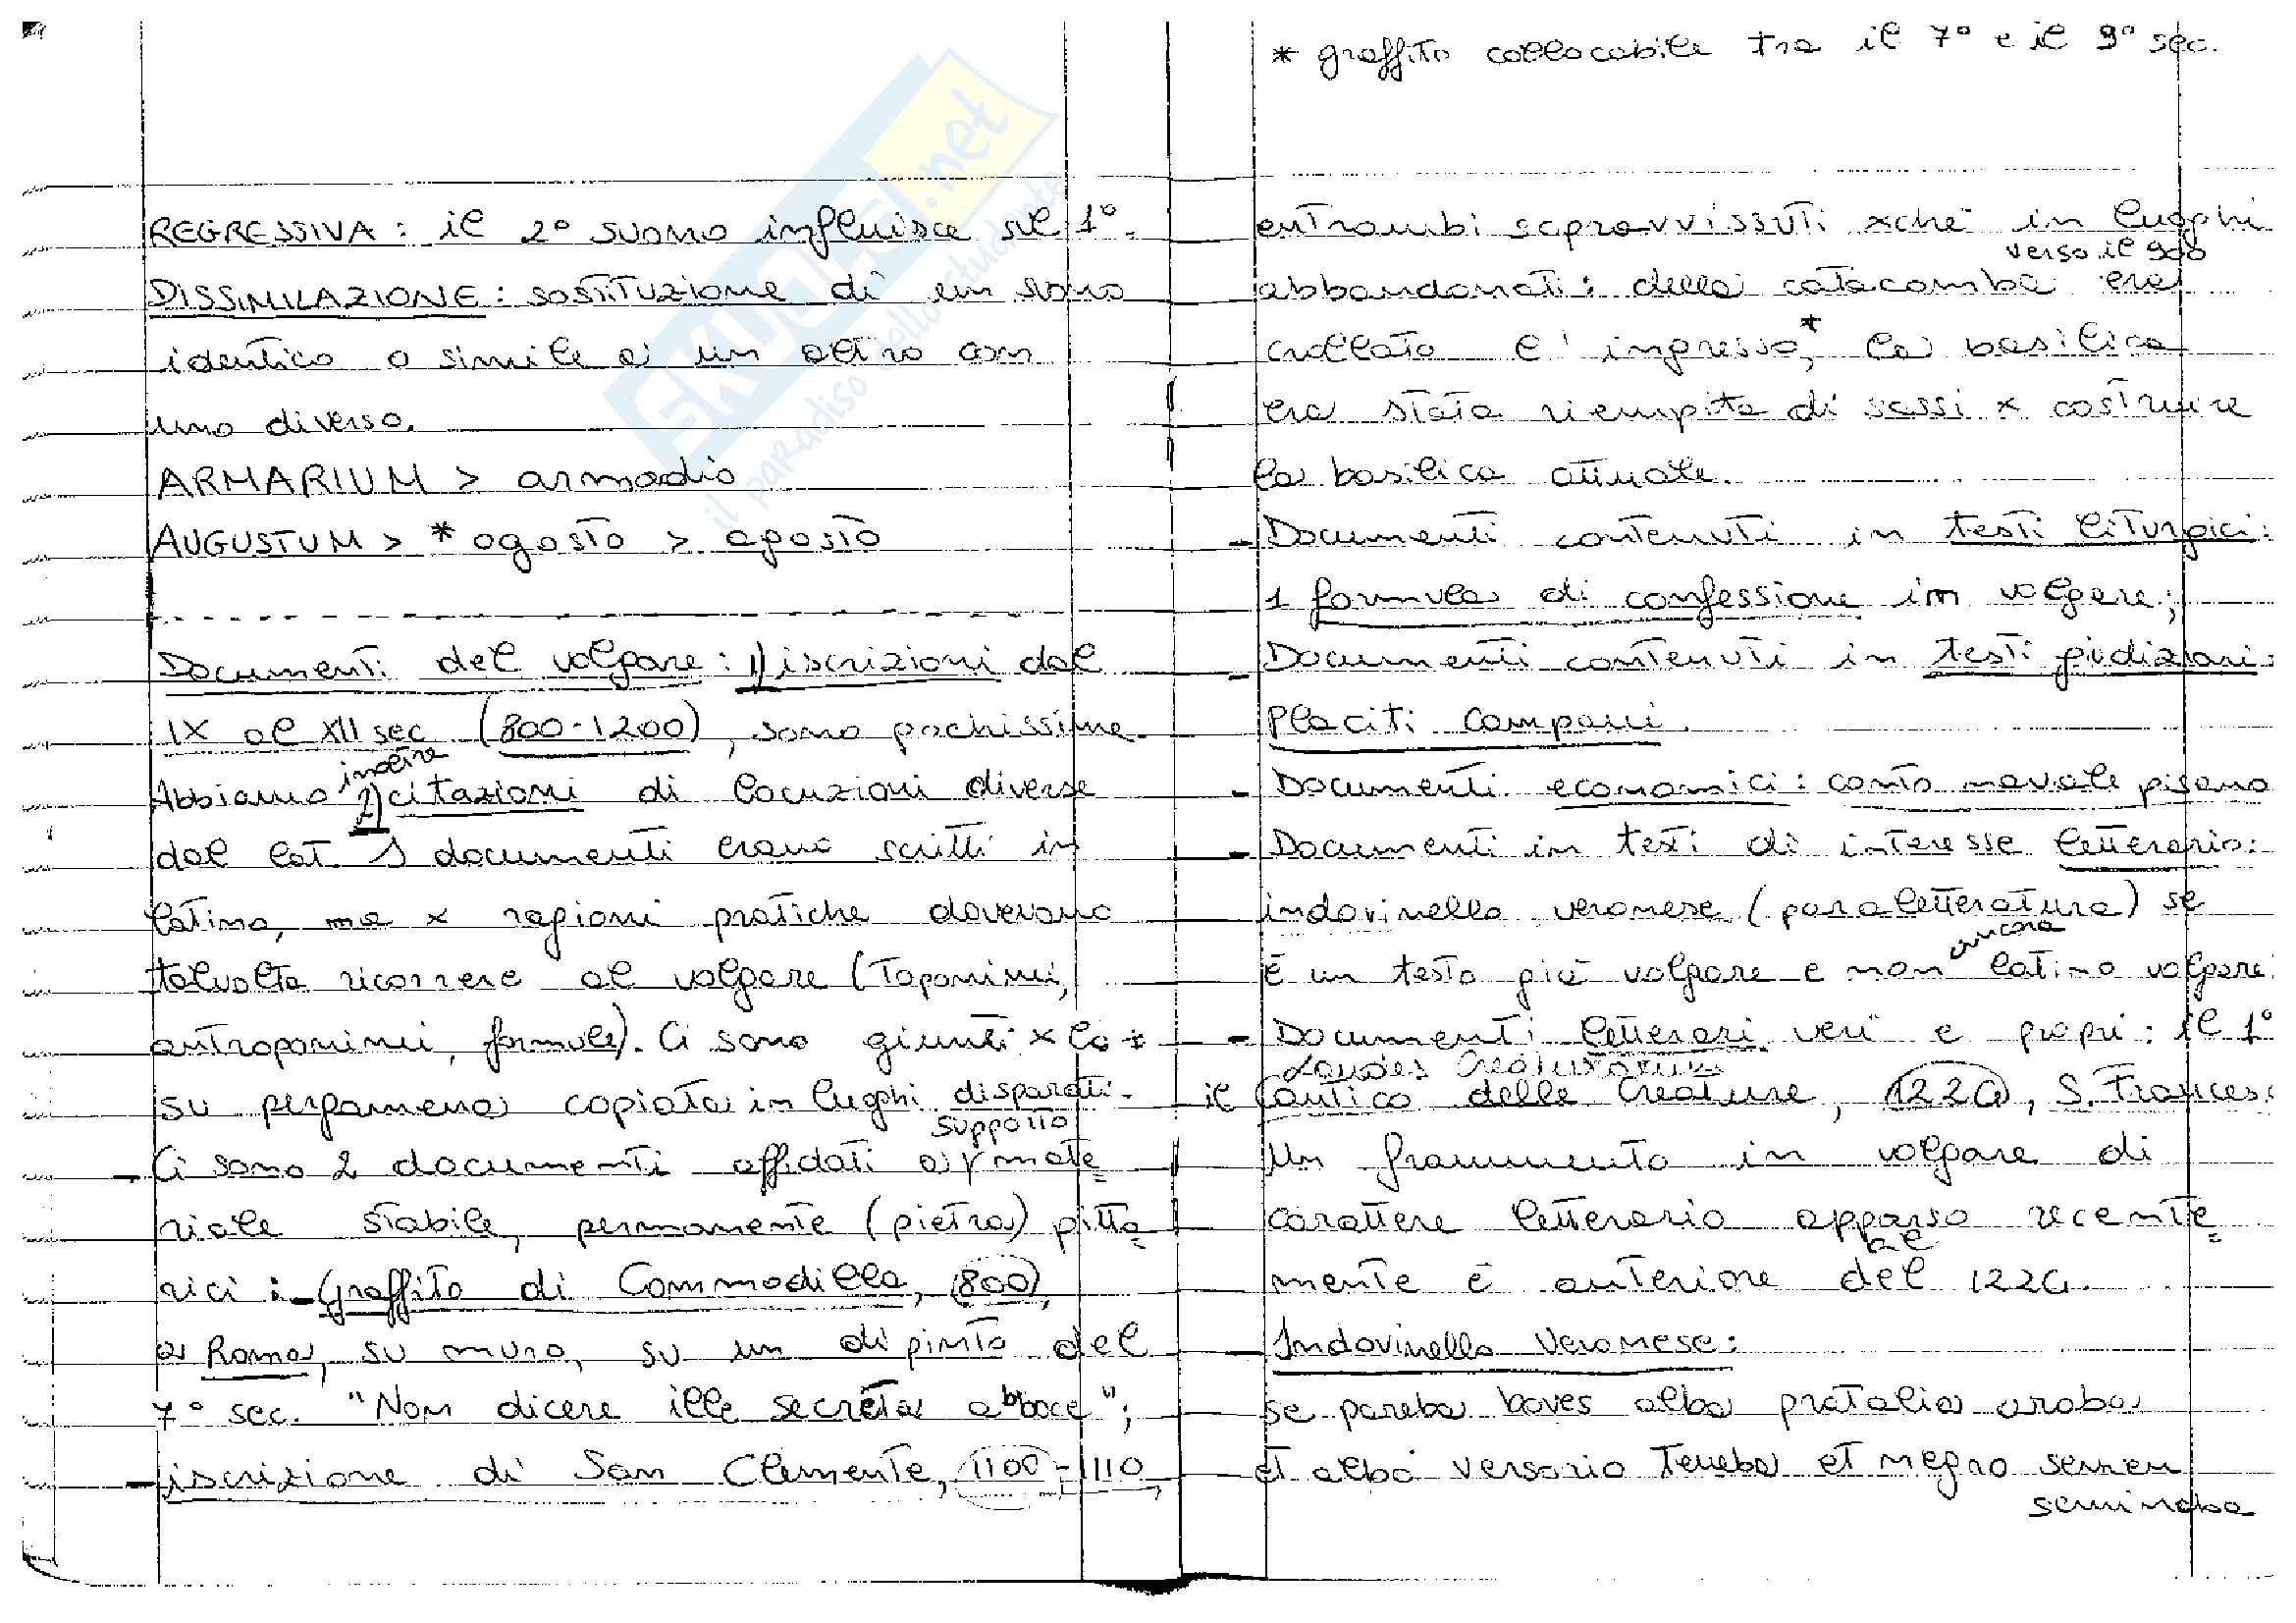 REGRESSIVA: il 2° suono influisce sul 1°.
DISSIMILAZIONE: sostituzione di un suono
identico o simile a un altro con
uno diverso.
ARMARIUM > armadio
AUGUSTUM > *agosto > agosto
Documenti del volgare: 1) iscrizioni dal
IX al XII sec (800-1200), sono pochissime.
Abbiamo inoltre 2) citazioni di locuzioni diverse
dal lat. I documenti erano scritti in
latino, ma x ragioni pratiche dovevano
talvolta ricorrere al volgare (toponimi,
antroponimi, formule). Ci sono giunti x lo +
su pergamena copiata in luoghi disparati.
- Ci sono 2 documenti affidati a supporto mate=
riale stabile, permanente (pietra) pitto=
rici: - Graffito di Commodilla, (800),
a Roma, su muro, su un dipinto del
7° sec. "Non dicere ille secreta abboce";
- iscrizione di San Clemente, 1100-1110,
* graffito collocabile tra il 7° e il 9° sec.
entrambi sopravvissuti xché in luoghi
abbandonati: della catacomba verso il 900 era
crollato l'ingresso,* la basilica
era stata riempita di sassi x costruire
la basilica attuale.
- Documenti contenuti in testi liturgici:
1 formula di confessione in volgare;
- Documenti contenuti in testi giudiziari:
Placiti Campani.
- Documenti economici: conto navale pisano
- Documenti in testi di interesse letterario:
indovinello veronese (paraletteratura) se
è un testo già volgare e non ancora latino volgare
- Documenti letterari veri e propri: il 1°
Laudes Creaturarum
il Cantico delle Creature, 1224, S. Frances
Un frammento in volgare di
carattere letterario apparso recente=
mente è anteriore al del 1224.
- Indovinello Veronese:
se pareba boves alba pratalia araba
et albo versorio teneba et negro semen
seminaba
SKUOLA.net
il paradiso dello studente